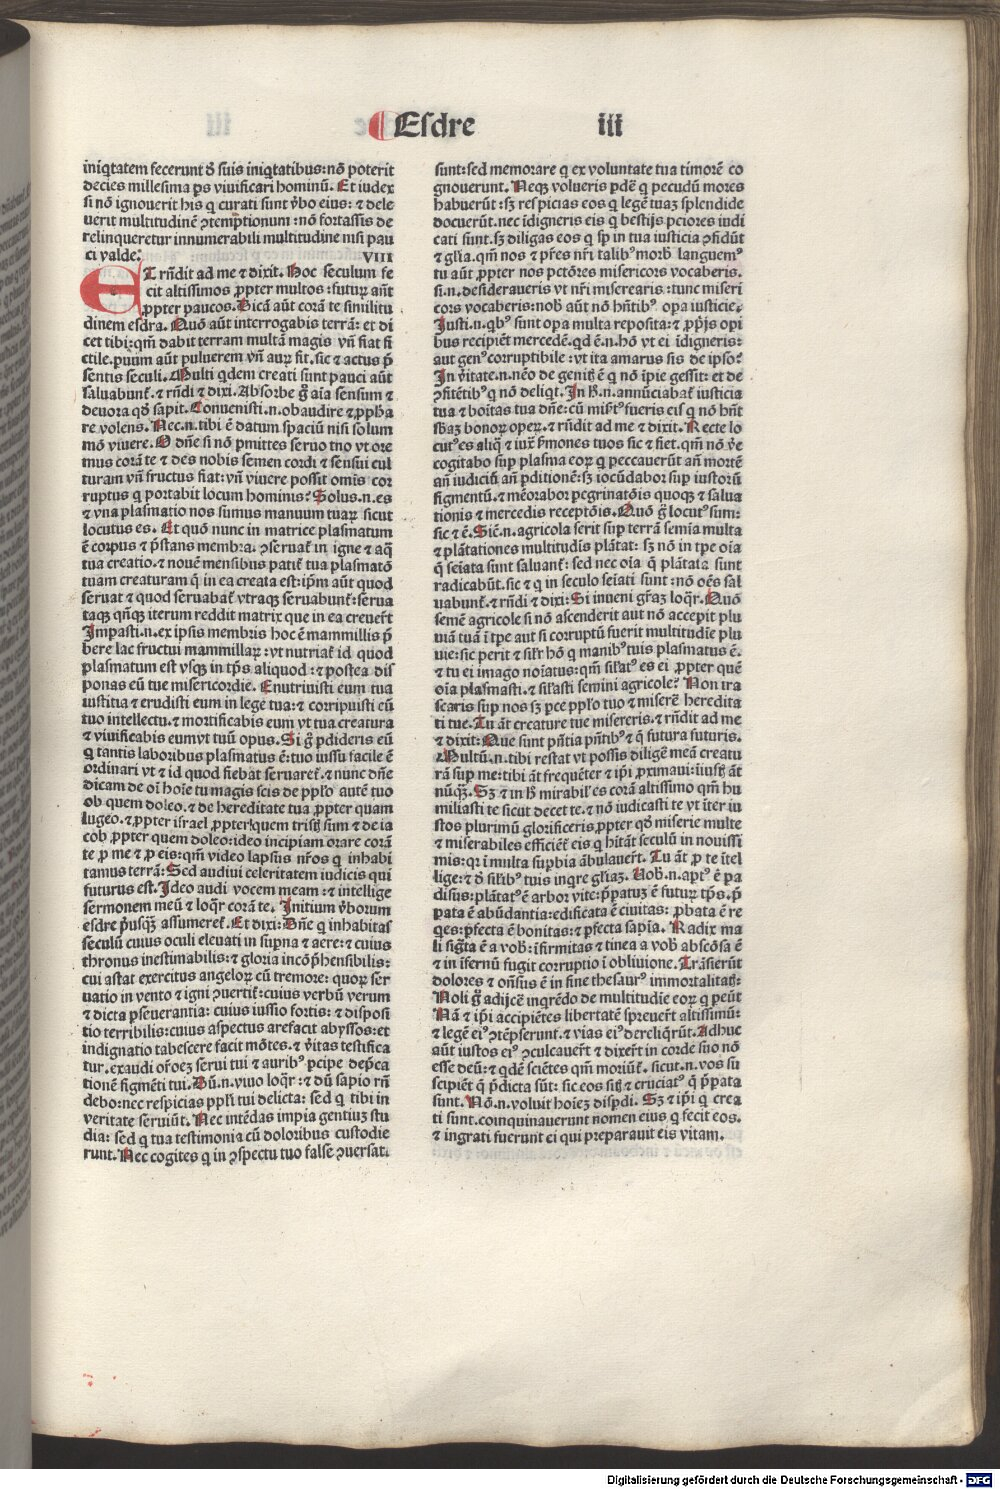 Esdre iii
iniq̃tatem fecerunt ⁊ď suis iniq̃tatibus: nõ poterit
decies millesima ps viuificari hominũ. Et iudex
si nõ ignouerit his q̃ curati sunt v̓bo eius: ⁊ dele
uerit multitudinẽ ↄtemptionum: nõ fortassis de
relinqueretur innumerabili multitudine nisi pau
ci valde. VIII
ET rñdit ad me ⁊ dixit. Hoc seculum fe
cit altissimos ꝓpter multos: futuꝝ aũt
ꝓpter paucos. Dicã aũt corã te similitu
dinem esdra. Quõ aũt interrogabis terrã: et di
cet tibi: qm̃ dabit terram multã magis vñ fiat fi
ctile. paruum aũt puluerem vñ auꝝ fit. sic ⁊ actus p̃
sentis seculi. Multi q̓dem creati sunt pauci aũt
saluabunt᷒. ⁊ rñdi ⁊ dixi. Absorbe g̊ aĩa sensum ⁊
deuora qď sapit. Conuenisti .n. obaudire ⁊ ꝓpha
re volens. Nec .n. tibi ẽ datum spaciũ nisi solum
mõ viuere. O dñe si nõ ꝑmittes seruo tuo vt ore
mus corã te ⁊ des nobis semen cordi ⁊ sensui cul
turam vñ fructus fiat: vñ viuere possit omis cor
ruptus q̃ portabit locum hominus? Solus .n. es
⁊ vna plasmatio nos sumus manuum tuaꝝ sicut
locutus es. Et quõ nunc in matrice plasmatum
ẽ corpus ⁊ p̃stans membra. ↄseruat᷒ in igne ⁊ aq̃
tua creatio. ⁊ nouẽ mensibus patit᷒ tua plasmatõ
tuam creaturam q̃ in ea creata est: ip̃m aũt quod
seruat ⁊ quod seruabat᷒ vtraqꝫ seruabunt᷒: serua
taqꝫ qñqꝫ iterum reddit matrix que in ea creuer̃t
Impasti .n. ex ipsis membris hoc ẽ mammillis p̃
bere lac fructui mammillaꝝ: vt nutriat᷒ id quod
plasmatum est vsqꝫ in tp̃s aliquod: ⁊ postea dis
ponas eũ tue misericordie. Enutriuisti eum tua
iustitia ⁊ erudisti eum in lege tua: ⁊ corripuisti eũ
tuo intellectu. ⁊ mortificabis eum vt tua creatura
⁊ viuificabis eum vt tuũ opus. Si g̊ ꝑdideris eũ
q̃ tantis laboribus plasmatus ẽ: tuo iussu facile ẽ
ordinari vt ⁊ id quod fiebat seruaret᷒. ⁊ nunc dñe
dicam de oĩ hoĩe tu magis scis de pp̃lo autẽ tuo
ob quem doleo. ⁊ de hereditate tua ꝓpter quam
lugeo. ⁊ ꝓpter israel ꝓpter quem tristis sum ⁊ de ia
cob ꝓpter quem doleo: ideo incipiam orare corã
te ꝓ me ⁊ ꝓ eis: qm̃ video lapsus nr̃os q̃ inhabi
tamus terrã: Sed audiui celeritatem iudicis qui
futurus est. Ideo audi vocem meam: ⁊ intellige
sermonem meũ ⁊ loq̃r corã te. Initium v̓borum
esdre p̃usq̃ꝫ assumeret᷒. Et dixi: Dñe q̃ inhabitas
seculũ cuius oculi eleuati in supna ⁊ aere: ⁊ cuius
thronus inestimabilis: ⁊ gloria incõp̃hensibilis:
cui astat exercitus angeloꝝ cũ tremore: quoꝝ ser
uatio in vento ⁊ igni ↄuertit᷒: cuius verbũ verum
⁊ dicta ꝑseuerantia: cuius iussio fortis: ⁊ disposi
tio terribilis: cuius aspectus arefacit abyssos: et
indignatio tabescere facit mõtes. ⁊ v̓itas testifica
tur. exaudi or̃oeꝫ serui tui ⁊ auribꝰ ꝑcipe dep̃ca
tionẽ figmẽti tui. Dũ .n. viuo loq̃r: ⁊ dũ sapio rñ
debo: nec respicias pp̃li tui delicta: sed q̃ tibi in
veritate seruiũt. Nec intẽdas impia gentiuꝫ stu
dia: sed q̃ tua testimonia cũ doloribus custodie
runt. Nec cogites q̃ in ↄspectu tuo false ↄuersati
sunt: sed memorare q̃ ex voluntate tua timorẽ co
gnouerunt. Neqꝫ volueris ꝑdẽ q̃ pecudũ mores
habuerũt: sꝫ respicias eos q̃ legẽ tuaꝫ splendide
docuerũt. nec idigneris eis q̃ bestijs peiores iudi
cati sunt. sꝫ diligas eos q̃ sp̃ in tua iusticia ↄfidũt
⁊ gl̃ia. qm̃ nos ⁊ p̃res nr̃i talibꝰ morb̓ languemꝰ
tu aũt ꝓpter nos pctõres misericors vocaberis.
si .n. desideraueris vt nr̃i miserearis: tunc miseri
cors vocaberis: nob̓ aũt nõ hñtibꝰ opa iusticie.
Iusti .n. qb̓ꝰ sunt opa multa reposita: ⁊ ꝓp̃js opi
bus recipiẽt mercedẽ. qd ẽ .n. hõ vt ei idigneris:
aut genꝰ corruptibile: vt ita amarus sis de ipso?
In v̓itate .n. nẽo de genitis ẽ q̃ nõ ĩpie gessit: et de
ↄfitẽtibꝰ q̃ nõ deliq̃t. In h̓ .n. annũciabat᷒ iusticia
tua ⁊ boĩtas tua dñe: cũ mib̓tꝰ fueris eis q̃ nõ hñt
sb̓aꝫ bonoꝝ opeꝝ. ⁊ rñdit ad me ⁊ dixit. Recte lo
cutꝰ es aliq̃ ⁊ iux̃ s̓mones tuos sic ⁊ fiet. qm̃ nõ v̓e
cogitabo sup plasma eoꝝ q̃ peccauerũt añ mortẽ
añ iudiciũ añ ꝑditionẽ: sꝫ iocũdabor sup iustorũ
figmentũ. ⁊ mẽorabor pegrinatõis quoqꝫ ⁊ salua
tionis ⁊ mercedis receptõis. Quõ g̊ locutꝰ sum:
sic ⁊ ẽ. Sic̃ .n. agricola serit sup terrã semĩa multa
⁊ plãtationes multitudĩs plãtat: sꝫ nõ in tpe oĩa
q̃ seĩata sunt saluant᷒: sed nec oĩa q̃ plãtata sunt
radicabũt. sic ⁊ q̃ in seculo seĩati sunt: nõ oẽs sal
uabunt᷒. ⁊ rñdi ⁊ dixi: Si inueni gr̃aꝫ loq̃r. Quõ
semẽ agricole si nõ ascenderit aut nõ accepit plu
uiã tuã ĩ tpe aut si corruptũ fuerit multitudĩe plu
uie: sic perit ⁊ silr̃ hõ q̃ manibꝰ tuis plasmatus ẽ.
⁊ tu ei imago noĩatus: qm̃ sil̓atꝰ es ei ꝓpter quẽ
oĩa plasmasti. ⁊ sil̓asti semini agricole? Non ira
scaris sup nos sꝫ pce pp̃lo tuo ⁊ miserẽ heredita
ti tue. Tu ãt creature tue misereris. ⁊ rñdit ad me
⁊ dixit: Que sunt p̃ñtia p̃ñtibꝰ ⁊ q̃ futura futuris.
Multũ .n. tibi restat vt possis diligẽ meã creatu
rã sup me: tibi ãt frequẽter ⁊ ip̃i ꝓximaui: iiustis ãt
nũq̃ꝫ. Sꝫ ⁊ in h̓ mirabil̓ es corã altissimo qm̃ hu
miliasti te sicut decet te. ⁊ nõ iudicasti te vt ĩter iu
stos plurimũ glorificeris. ꝓpter qď miserie multe
⁊ miserabiles efficient᷒ eis q̃ hĩtãt seculũ in nouissi
mis: qr ĩ multa supbia ãbulauer̃t. Tu ãt ꝓ te ĩtel
lige: ⁊ ď sil̓ibꝰ tuis inq̃re gl̃iaꝫ. Nob̓ .n. aptꝰ ẽ pa
disus: plãtatꝰ ẽ arbor vite: p̃patuꝫ ẽ futuꝝ tp̃s. p̃
pata ẽ abũdantia: edificata ẽ ciuitas: ꝓbata ẽ re
q̃es: ꝑfecta ẽ bonitas: ⁊ ꝑfecta sapĩa. Radix ma
li sig̃ta ẽ a vob̓: ĩfirmitas ⁊ tinea a vob̓ abscõsa ẽ
⁊ in ĩfernũ fugit corruptio ĩ obliuione. Trãsierũt
dolores ⁊ oñsus ẽ in fine thesaurꝰ immortalitatis:
Noli g̊ adijcẽ inq̃rẽdo de multitudĩe eoꝝ q̃ peũt
Nã ⁊ ip̃i accipiẽtes libertatẽ spreuer̃t altissimũ:
⁊ legẽ eiꝰ ↄtẽpserunt. ⁊ vias eiꝰ dereliq̃rũt. Adhuc
aũt iustos eiꝰ ↄculcauer̃t ⁊ dixer̃t in corde suo nõ
esse deũ: ⁊ q̓dẽ sciẽtes qm̃ moriũt᷒. sicut .n. vos su
scipiẽt q̃ p̃dicta sũt: sic eos sitis ⁊ cruciatꝰ q̃ p̃pata
sunt. Nõ .n. voluit hoĩeꝫ dispdi. Sꝫ ⁊ ip̃i q̃ crea
ti sunt. coinquinauerunt nomen eius q̃ fecit eos.
⁊ ingrati fuerunt ei qui preparauit eis vitam.
Digitalisierung gefördert durch die Deutsche Forschungsgemeinschaft - DFG